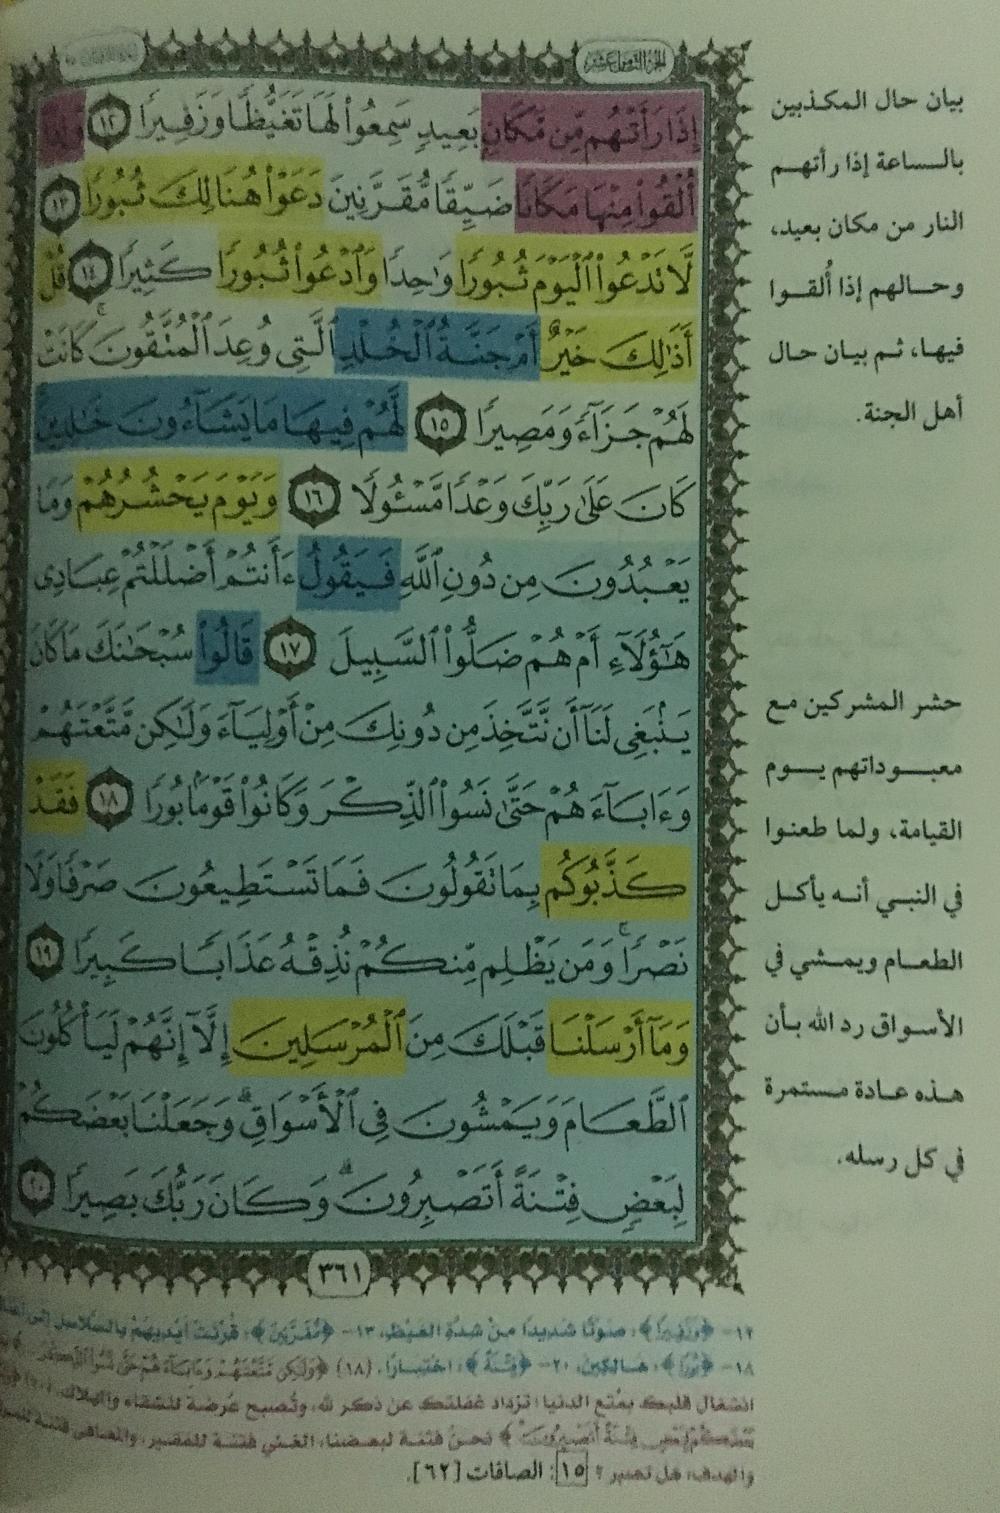 الجزء الثامن عشر
إِذَا رَأَتْهُم مِّن مَّكَانٍ بَعِيدٍ سَمِعُوا۟ لَهَا تَغَيُّظًا وَزَفِيرًا ١٢ وَإِذَآ
أُلْقُوا۟ مِنْهَا مَكَانًا ضَيِّقًا مُّقَرَّنِينَ دَعَوْا۟ هُنَالِكَ ثُبُورًا ١٣
لَّا تَدْعُوا۟ ٱلْيَوْمَ ثُبُورًا وَٰحِدًا وَٱدْعُوا۟ ثُبُورًا كَثِيرًا ١٤ قُلْ
أَذَٰلِكَ خَيْرٌ أَمْ جَنَّةُ ٱلْخُلْدِ ٱلَّتِى وُعِدَ ٱلْمُتَّقُونَ ۚ كَانَتْ
لَهُمْ جَزَآءً وَمَصِيرًا ١٥ لَّهُمْ فِيهَا مَا يَشَآءُونَ خَٰلِدِينَ ۚ
كَانَ عَلَىٰ رَبِّكَ وَعْدًا مَّسْـُٔولًا ١٦ وَيَوْمَ يَحْشُرُهُمْ وَمَا
يَعْبُدُونَ مِن دُونِ ٱللَّهِ فَيَقُولُ ءَأَنتُمْ أَضْلَلْتُمْ عِبَادِى
هَٰٓؤُلَآءِ أَمْ هُمْ ضَلُّوا۟ ٱلسَّبِيلَ ١٧ قَالُوا۟ سُبْحَٰنَكَ مَا كَانَ
يَنۢبَغِى لَنَآ أَن نَّتَّخِذَ مِن دُونِكَ مِنْ أَوْلِيَآءَ وَلَٰكِن مَّتَّعْتَهُمْ
وَءَابَآءَهُمْ حَتَّىٰ نَسُوا۟ ٱلذِّكْرَ وَكَانُوا۟ قَوْمًۢا بُورًا ١٨ فَقَدْ
كَذَّبُوكُم بِمَا تَقُولُونَ فَمَا تَسْتَطِيعُونَ صَرْفًا وَلَا
نَصْرًا ۚ وَمَن يَظْلِم مِّنكُمْ نُذِقْهُ عَذَابًا كَبِيرًا ١٩
وَمَآ أَرْسَلْنَا قَبْلَكَ مِنَ ٱلْمُرْسَلِينَ إِلَّآ إِنَّهُمْ لَيَأْكُلُونَ
ٱلطَّعَامَ وَيَمْشُونَ فِى ٱلْأَسْوَاقِ ۗ وَجَعَلْنَا بَعْضَكُمْ
لِبَعْضٍ فِتْنَةً أَتَصْبِرُونَ ۗ وَكَانَ رَبُّكَ بَصِيرًا ٢٠
٣٦١
بيان حال المكذبين
بالساعة إذا رأتهم
النار من مكان بعيد،
وحالهم إذا أُلقوا
فيها، ثم بيان حال
أهل الجنة.
حشر المشركين مع
معبوداتهم يوم
القيامة، ولما طعنوا
في النبي أنه يأكل
الطعام ويمشي في
الأسواق رد الله بأن
هذه عادة مستمرة
في كل رسله.
١٢- ﴿وَزَفِيرًا﴾: صوتًا شديدًا من شدة الغيظ، ١٣- ﴿مُقَرَّنِينَ﴾: قُرِنَت أيديهم بالسلاسل إلى
١٨- ﴿بُورًا﴾: هالكين، ٢٠- ﴿فِتْنَةً﴾: اختبارًا. (١٨) ﴿وَلَٰكِن مَّتَّعْتَهُمْ وَءَابَآءَهُمْ حَتَّىٰ نَسُوا۟ ٱلذِّكْرَ﴾
انشغال قلبك بمتع الدنيا؛ تزداد غفلتك عن ذكر لله، وتُصبح عُرضة للشقاء والهلاك. (٢٠)
بَعْضَكُمْ لِبَعْضٍ فِتْنَةً أَتَصْبِرُونَ﴾ نحن فتنة لبعضنا، الغني فتنة للفقير، والمعافى فتنة
والهدف: هل تصبر؟ ١٥: الصافات [٦٢].